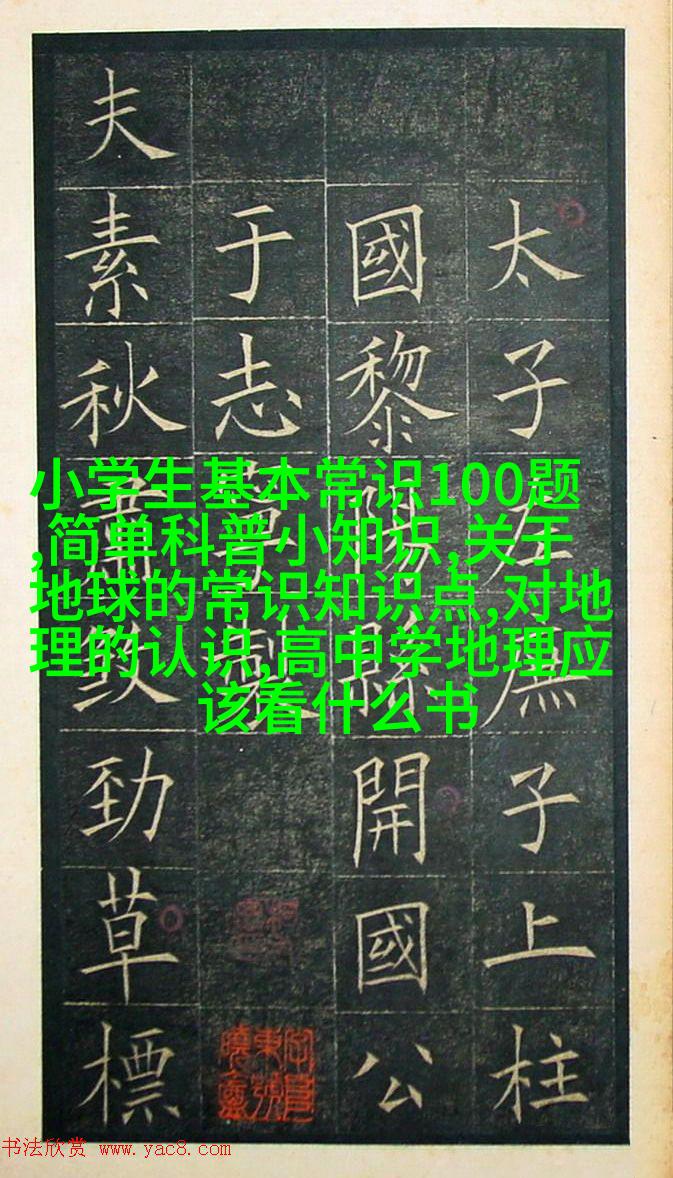 太子左庶子上柱
國黎陽縣開國公
于志寧製
夫素秋肅致勁草標
小学生基本常识100题
,简单科普小知识,关于
地球的常识知识点,对地
理的认识,高中学地理应
该看什么书
书法欣赏 www.yac8.com